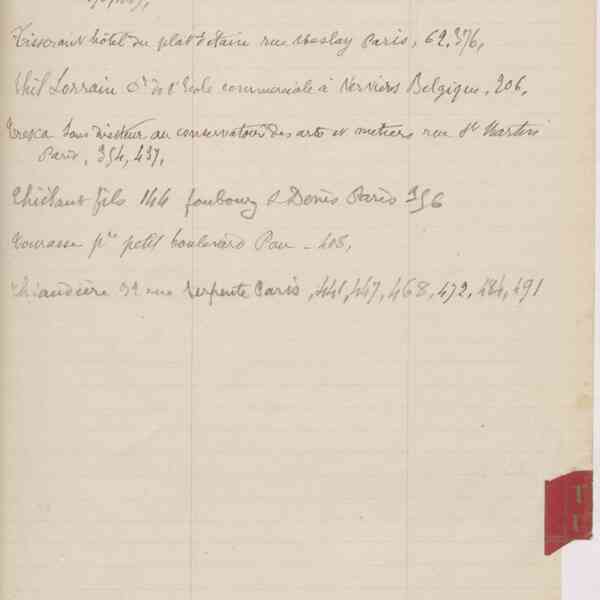 Tisserant hôtel du plat d'étain rue Meslay Paris, 62, 376,
Thil Lorrain Dr de l'Ecole commerciale à Verviers Belgique, 206,
Tresca Sous Directeur au conservatoire des arts et metiers rue St Martin
Paris, 354, 437,
fils 144 faubourg S Denis Paris 356
Tourasse pre petit boulevard Pau - 408,
Thiaudière 32 rue Serpente Paris, 441, 447, 468, 472, 484, 491
T